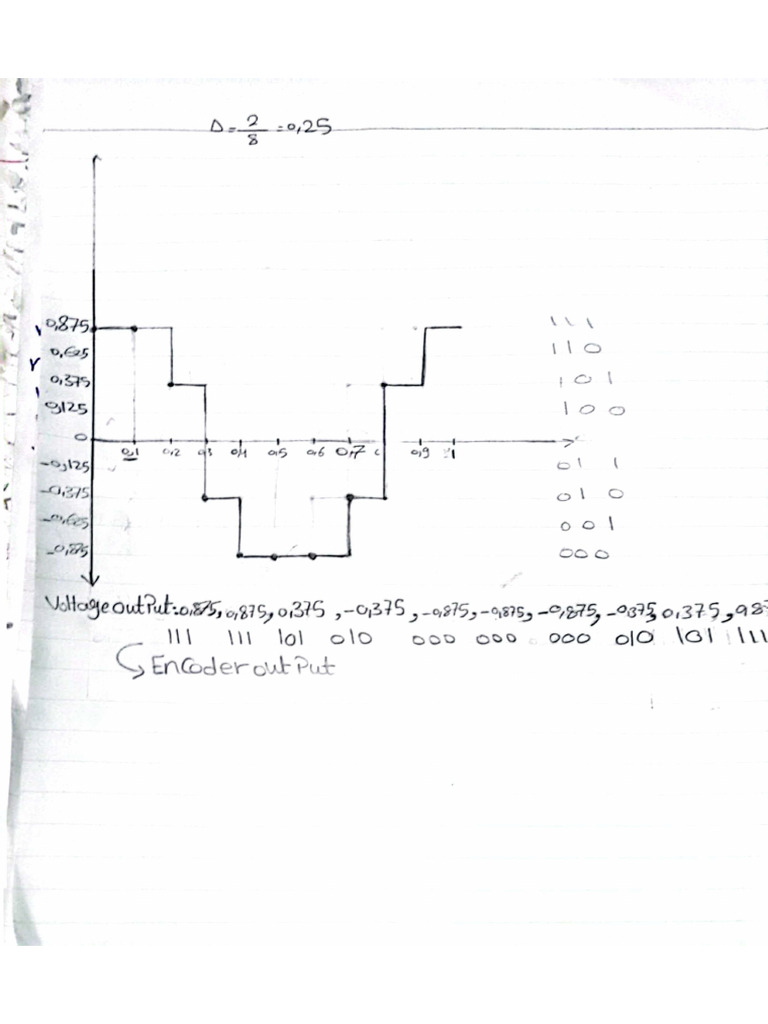 Δ = 2/8 = 0,25
0,875 111
0,625 110
0,375 101
0,125 100
0
0,1 0,2 0,3 0,4 0,5 0,6 0,7 0,9 1
-0,125 011
-0,375 010
-0,625 001
-0,875 000
Voltage output: 0,875, 0,875, 0,375, -0,375, -0,875, -0,875, -0,875, -0,375, 0,375, 0,87
111 111 101 010 000 000 000 010 101 111
Encoder output